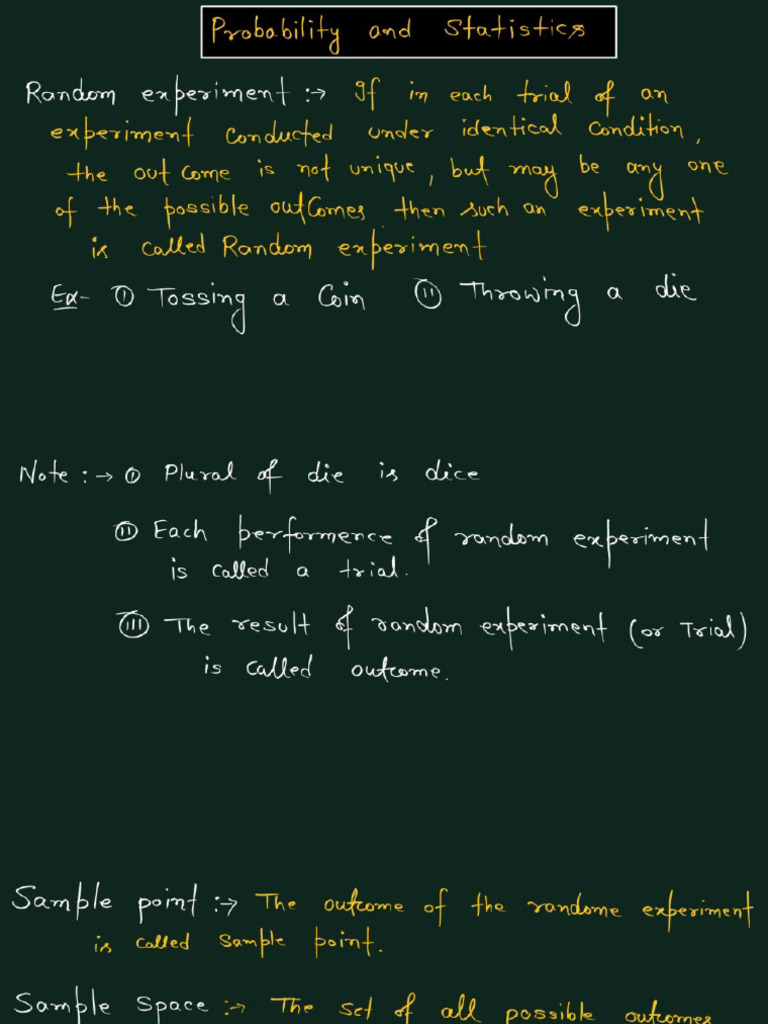 Probability and Statistics
Random experiment :→ If in each trial of an
experiment conducted under identical condition,
the outcome is not unique, but may be any one
of the possible outcomes then such an experiment
is called Random experiment
Ex- (i) Tossing a Coin (ii) Throwing a die
Note :→ (i) Plural of die is dice
(ii) Each performence of random experiment
is called a trial.
(iii) The result of random experiment (or Trial)
is called outcome.
Sample point :→ The outcome of the randome experiment
is called sample point.
Sample Space :→ The set of all possible outcomes